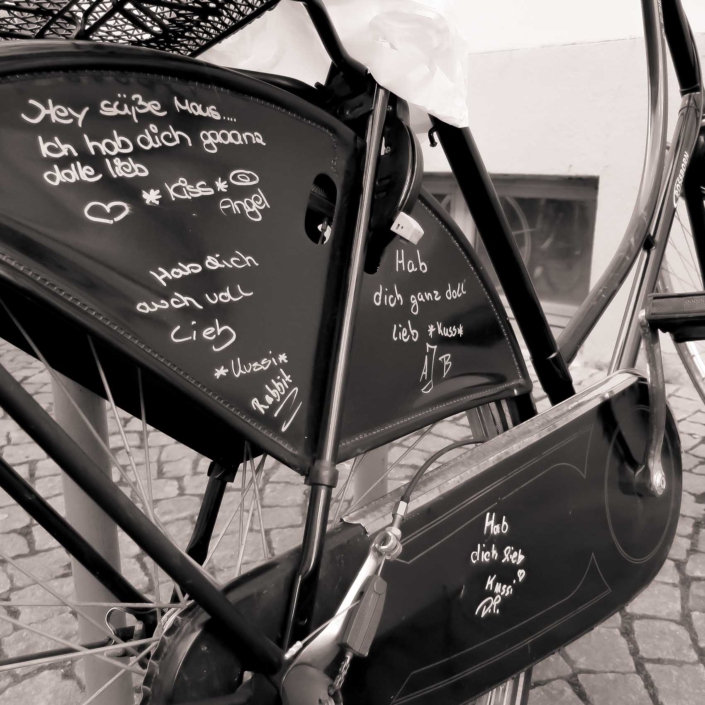 Hey süße Maus....
Ich hab dich gaaanz
dolle lieb
*Kiss*
Angel
Hab dich
auch voll
Lieb
*Kussi*
Rabbit
Hab
dich ganz doll
lieb *Kuss*
A B
Hab
dich lieb
Kussi
D.P.